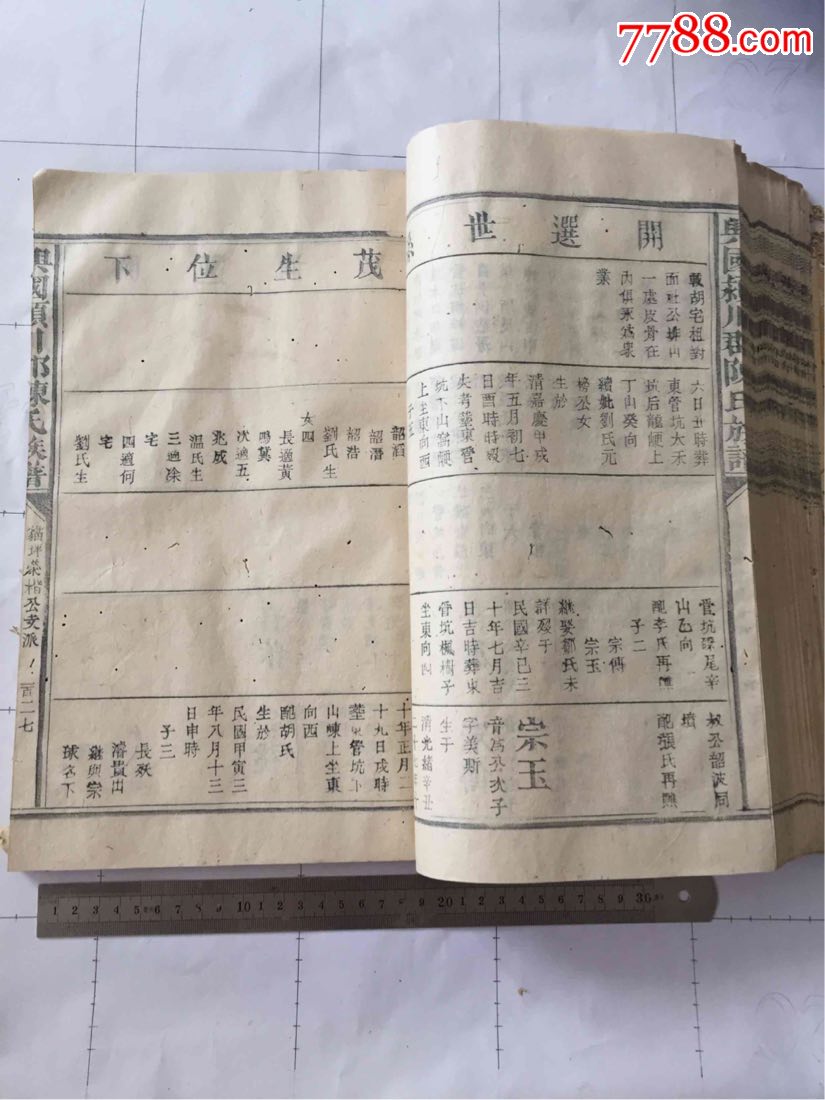 7788.com
興國潁川郡陳氏族譜
開選世
載胡宅相對
一處皮骨在
內俱係爲衆
業
六日丑時葬
東管坑大禾
丁山癸向
續妣劉氏元
榜公女
生於
清嘉慶甲戌
年五月初七
日酉時時歿
失考葬東管
上坐東向西
管坑深尾辛
山乙向
配李氏再醮
子二
宗傳
宗玉
繼娶鄒氏未
詳歿于
民國辛巳三
十年七月吉
日吉時葬東
管坑楓樹子
坐東向西
叔公韶波同
墳
配張氏再醮
宗玉
音爲公次子
字美斯
生于
清光緒辛丑
茂生位下
韶滔
韶潛
韶浩
劉氏生
女四
長適黃
鳴鸞
次適五
兆成
溫氏生
三適涂
宅
四適何
宅
劉氏生
十年正月二
十九日戌時
葬東管坑下
山崠上坐東
向西
配胡氏
生於
民國甲寅三
年八月十三
日申時
子三
長妖
濬貴出
繼與宗
球名下
興國潁川郡陳氏族譜
公支派
一百二七
1 2 3 4 5 6 7 8 9 10 1 2 3 4 5 6 7 8 9 20 1 2 3 4 5 6 7 8 9 30